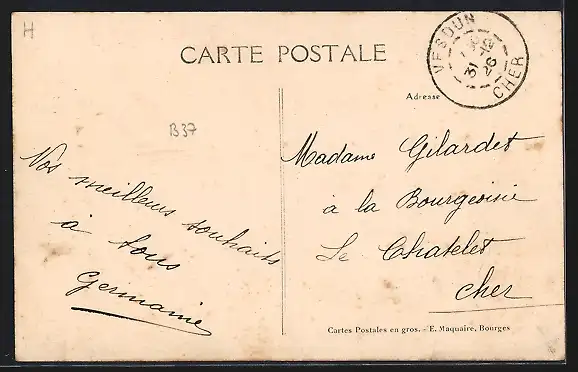 H
CARTE POSTALE
VESDUN
31 12
26
CHER
Adresse
B37
Vos meilleurs souhaits
à tous
Germaine
Madame Gilardet
à la Bourgeoisie
Le Chatelet
Cher
Cartes Postales en gros. - E. Maquaire, Bourges